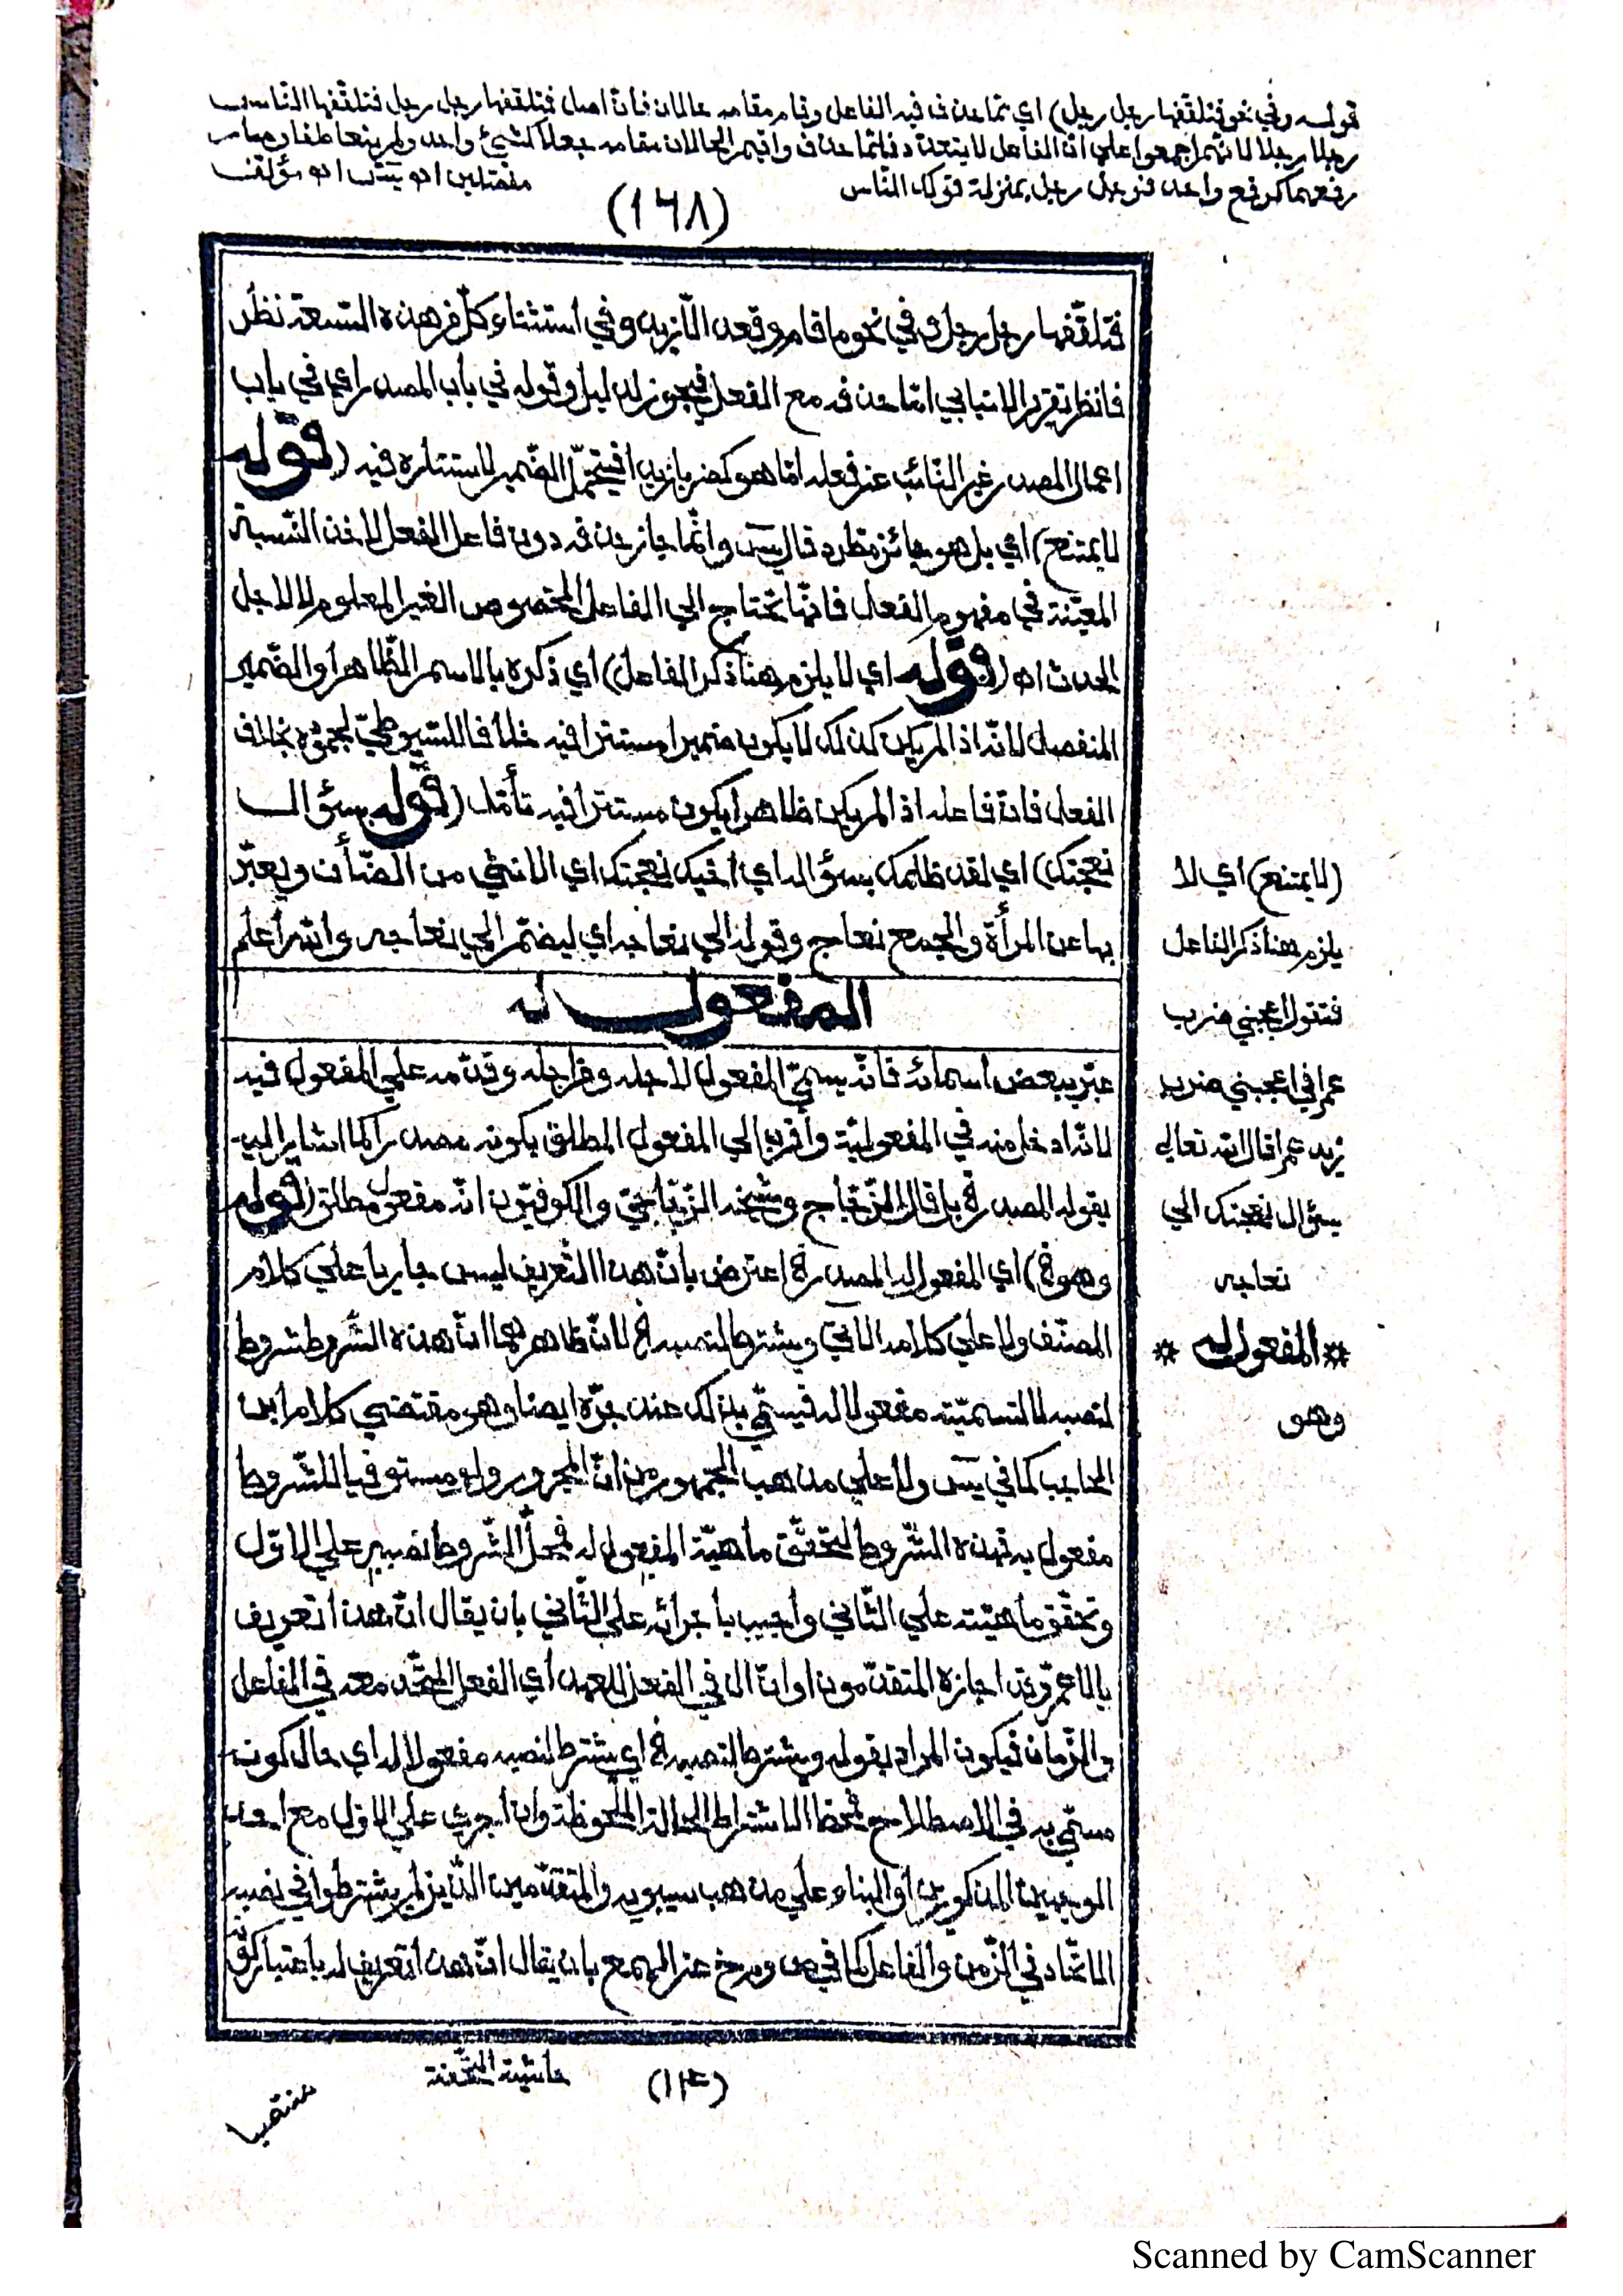 قوله وفي نحو فتلقفها رجل رجل) اي مما حذف فيه الفاعل وقام مقامه حالان فان اصل فتلقفها رجل رجل فتلقفها الناس
رجلا رجلا لانهم اجمعوا علي ان الفاعل لا يتعدد فلما حذف واقيم الحالان مقامه جعلا كشيئ واحد ولم يتعاطفا وصار
رفعهما كرفع واحد فنو رجل رجل بمنزلة قولك الناس منفصلين اھ يٓس اھ مؤلفه
(١٦٨)
فتلقّفها رجل رجل وفي نحو ما قام وقعد الّا زيد وفي أستثناء كلّ من هذه التسعة نظر
فانظر تقرير الانبابي امّا حذفه مع الفعل فيجوز لدليل وقوله في باب المصدر اي في باب
اعمال المصدر غير النّائب عن فعله امّا هو كضربا زيدا فيتحمّل الضّمير لاستتاره فيه (قوله
لا يمتنع) اي بل هو جائز مطّرد قال يٓس وانّما جاز حذفه دون فاعل الفعل لاخذ النّسبة
المعيّنة في مفهوم الفعل فانّها تحتاج الي الفاعل المخصوص الغير المعلوم لا لاجل
الحدث اھ (قوله اي لا يلزم هنا ذكر الفاعل) اي ذكره بالاسم الظّاهر أو الضّمير
المنفصل لانّه اذا لم يكن كذلك لا يكون ضميرا مستترا فيه خلافا للسّيوطيّ لجموده بخلاف
الفعل فانّ فاعله اذا لم يكن ظاهرا يكون مستترا فيه تأمّل (قوله بسؤال
نعجتك) اي لقد ظلمك بسؤاله اي أخيك نعجتك اي الانثي من الضّأن ويعبّر
بها عن المرأة والجمع نعاج وقوله الي نعاجه اي ليضمّ الي نعاجه والله أعلم
المفعول له
عبّر ببعض أسمائه فانّه يسمّي المفعول لاجله ومن اجله وقدّمه علي المفعول فيه
لانّه ادخل منه في المفعوليّة وأقرب الي المفعول المطلق بكونه مصدرا كما اشار اليه
بقوله المصدر الخ بل قال الزّجّاج والكوفيّون انّه مفعول مطلق (قوله
وهو الخ) اي المفعول له المصدر الخ اعترض بأنّ هذا التّعريف ليس جاريا علي كلام
المصنّف ولا علي كلامه الاتي ويشترط لنصبه الخ لانّ ظاهرهما انّ هذه الشّروط شروط
لنصبه لا لتسميّته مفعولا له فيسمّي بذلك عند جرّه ايضا وهو مقتضي كلام ابن
الحاجب كما في يٓس ولا علي مذهب الجمهور من انّ المجرور ولو مستوفيا للشّروط
مفعول به فهذه الشّروط لتحقّق ماهيّة المفعول له فمحلّ الشّروط نصبه علي الاوّل
وتحقّق ماهيّته علي الثّاني وأجيب باجرائه علي الثّاني بان يقال انّ هذا تعريف
بالاعمّ وقد اجازه المتقدّمون او انّ ال في الفعل للعهد أي الفعل المتّحد معه في الفاعل
والزّمان فيكون المراد بقوله ويشترط لنصبه الخ اي يشترط لنصبه مفعولا له اي حال كونه
مسمّي به في الاصطلاح فمحطّ الاشتراط الحالة الملحوظة وان أجريت علي الاوّل مع احد
الوجهين المذكورين أو البناء علي مذهب سيبويه والمتقدّمين الّذين لم يشترطوا في نصبه
الاتّحاد في الزّمن والفاعل كما في ومرخ عن الهمع بان يقال انّ هذا تعريف له باعتبار كونه
(لا يمتنع) اي لا
يلزم هنا ذكر الفاعل
فتقول اعجبني ضرب
عمرا في اعجبني ضرب
زيد عمرا قال الله تعالي
بسؤال نعجتك الي
نعاجه
* المفعول له *
وهو
حاشية التّحفة
منتصبا
Scanned by CamScanner